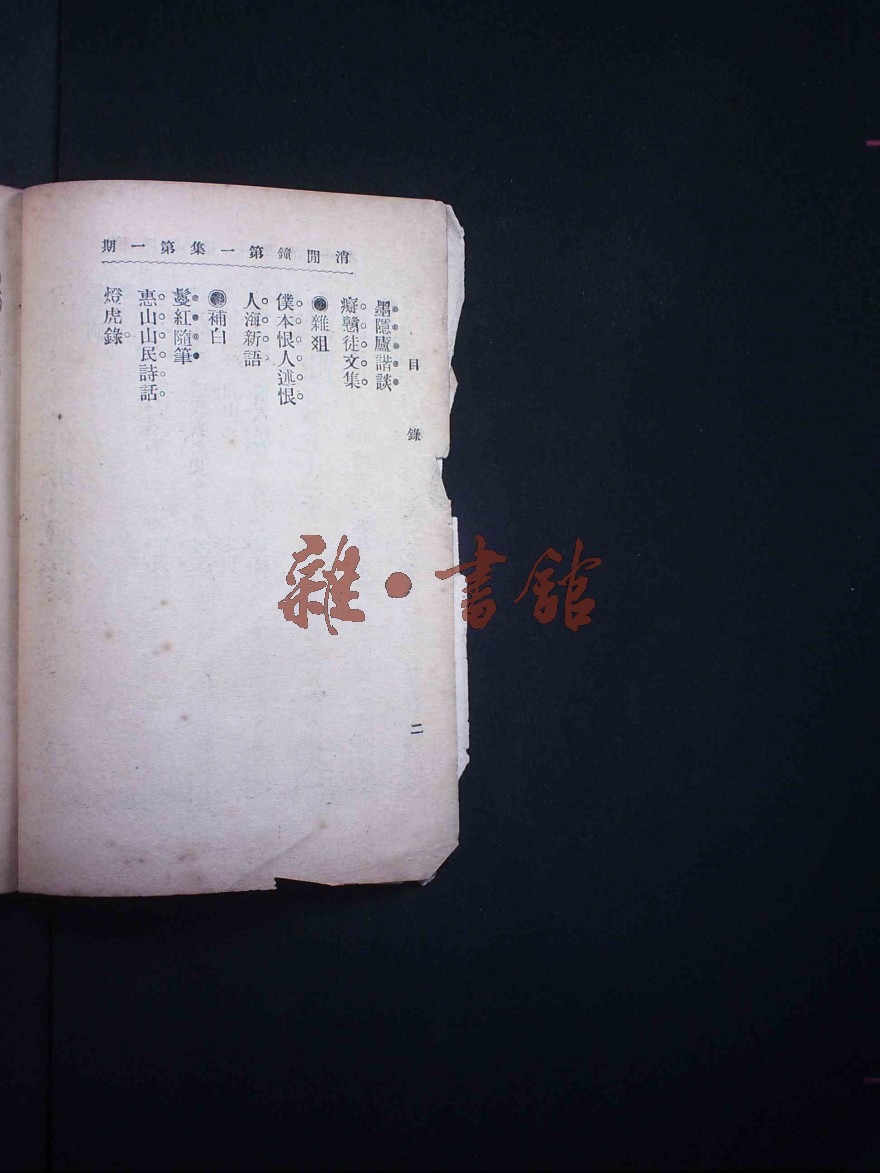 消閒鐘第一集第一期
目錄
墨隱廬諧談
癡戆徒文集
雜俎
僕本恨人述恨
人海新語
補白
鬘紅隨筆
惠山山民詩話
燈虎錄
二
雜·書館